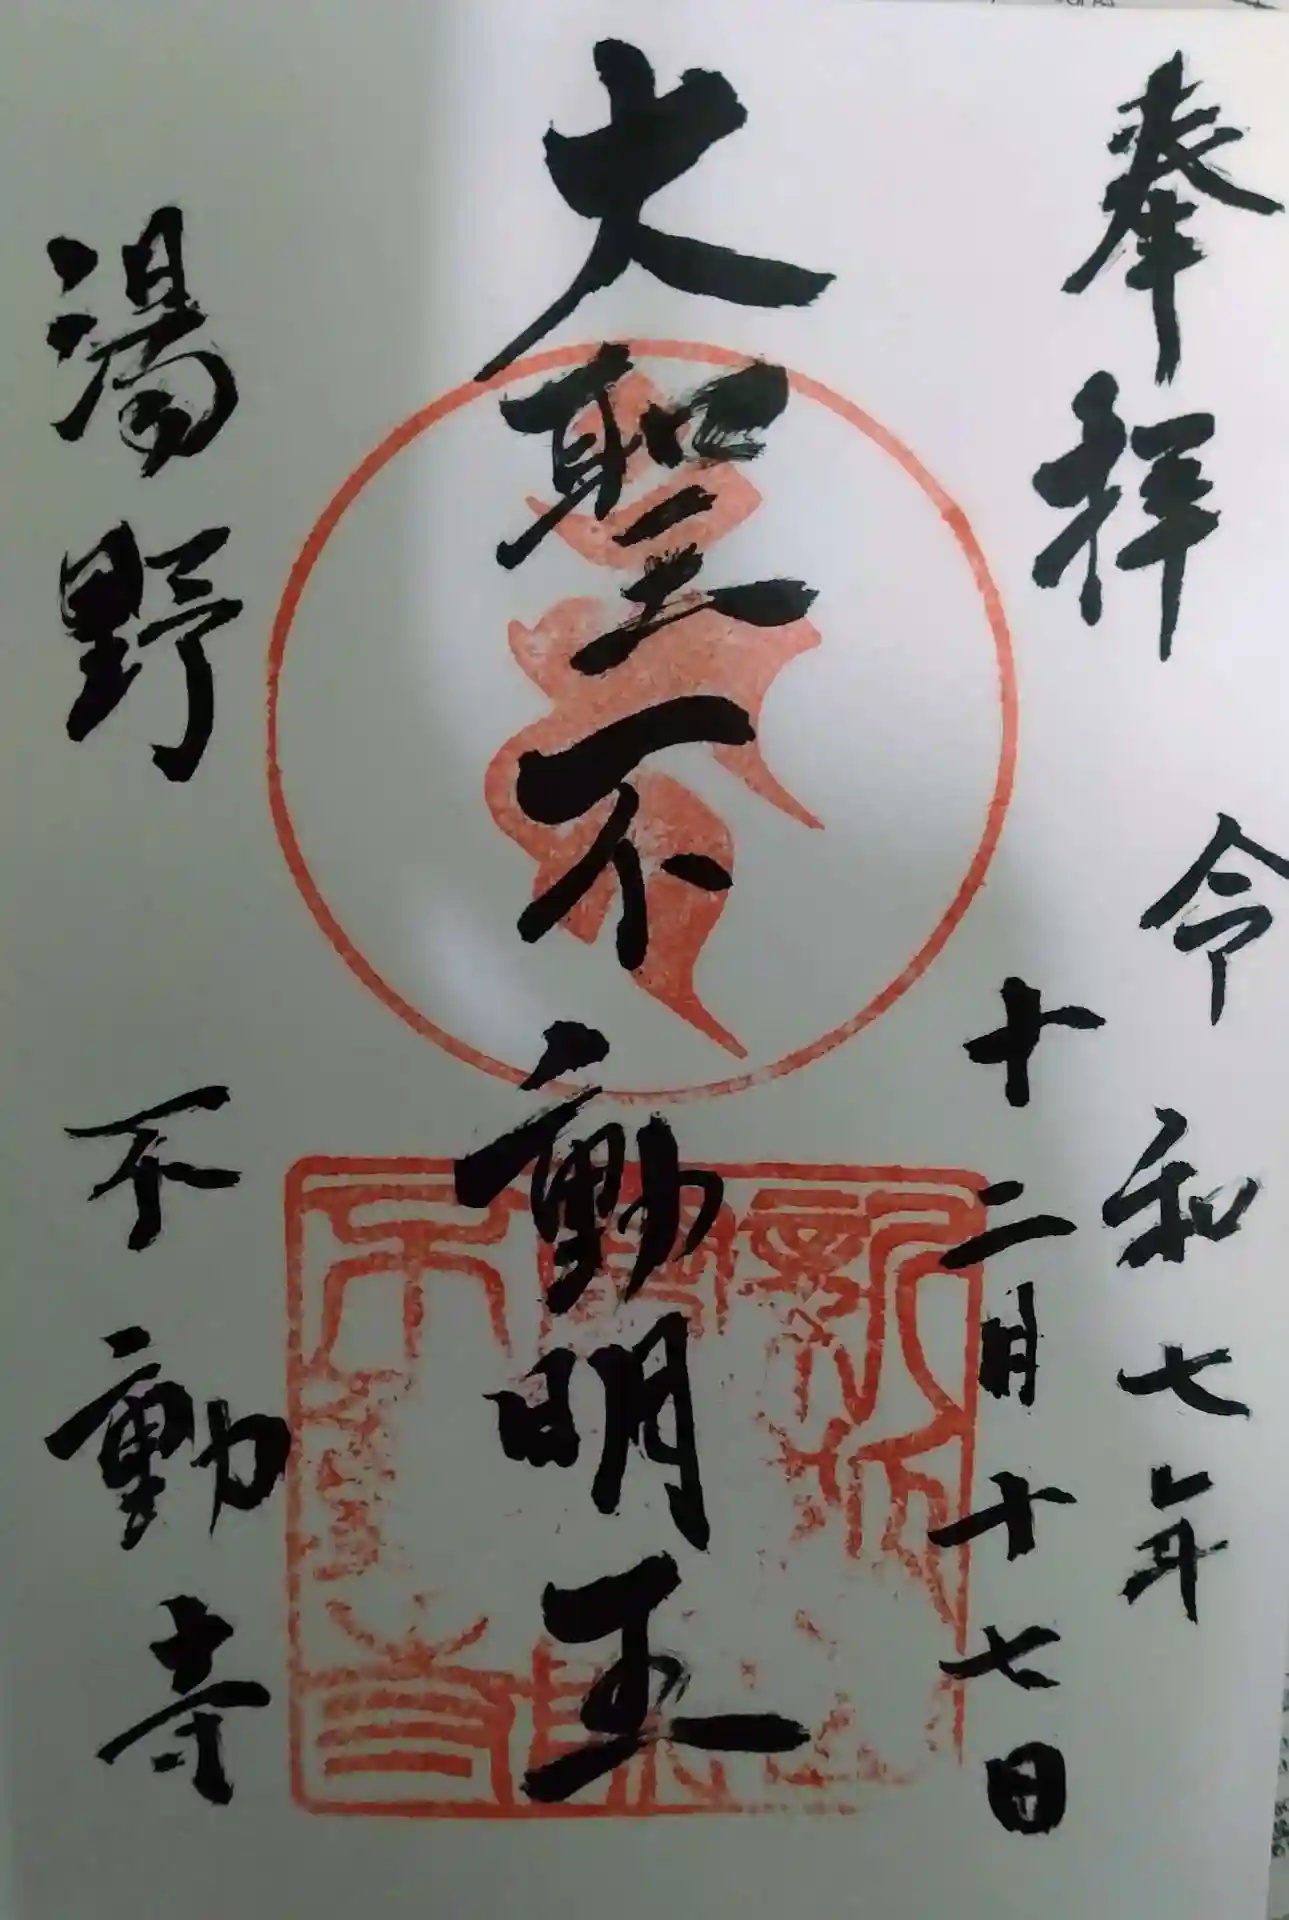 奉拝
令和七年
十二月十七日
大聖不動明王
湯野
不動寺